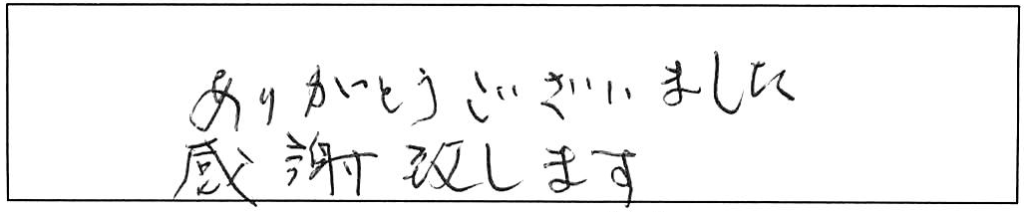 ありがとうございました
感謝致します